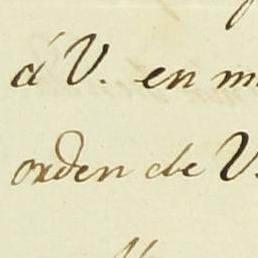 á V. en m
orden de V.